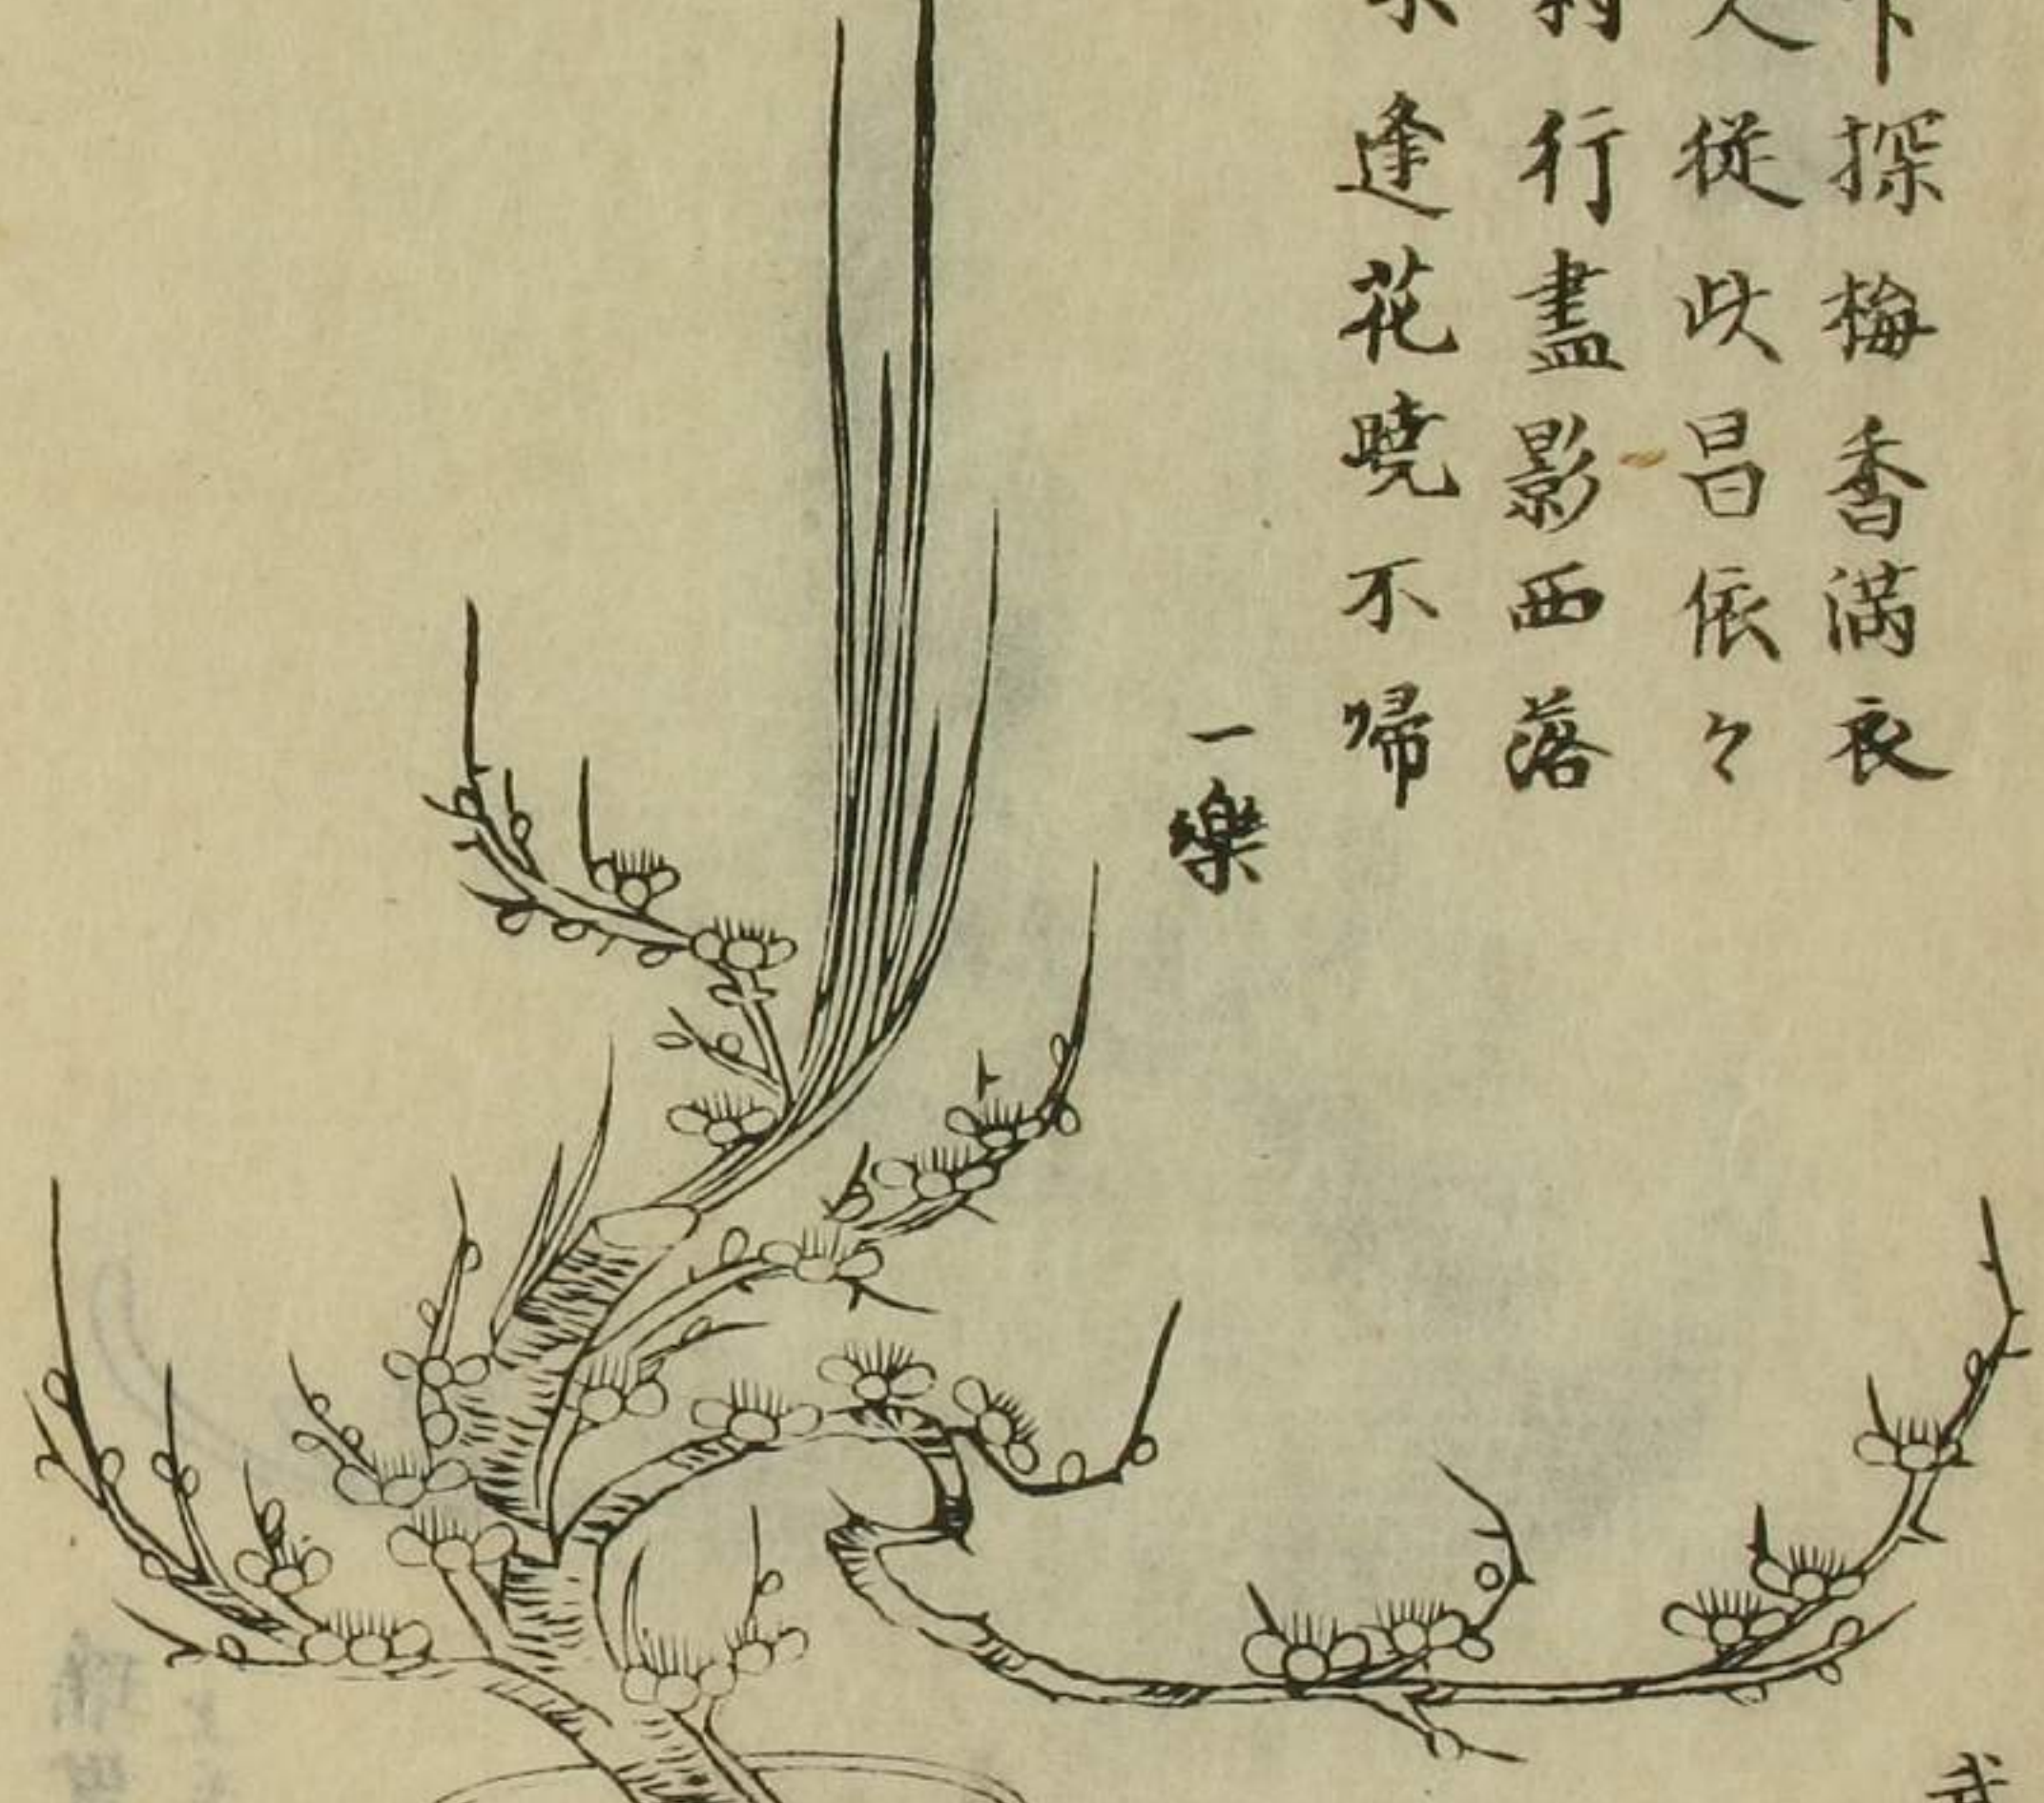 探梅香満衣
人従此昌依々
行盡影西落
逢花暁不帰
一樂